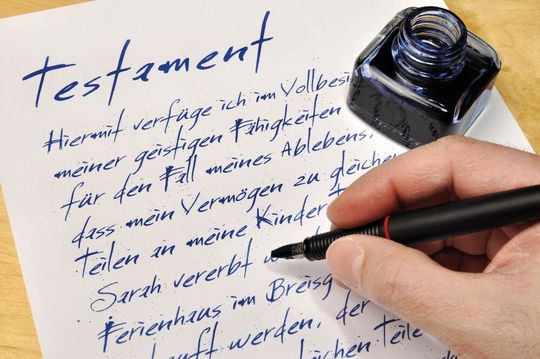 Testament
Hiermit verfüge ich im Vollbesi
meiner geistigen Fähigkeiten
für den Fall meines Ablebens,
dass mein Vermögen zu gleichen
Teilen an meine Kinder
Sarah vererbt
Ferienhaus im Breisg
werden, der
gleichen Teile